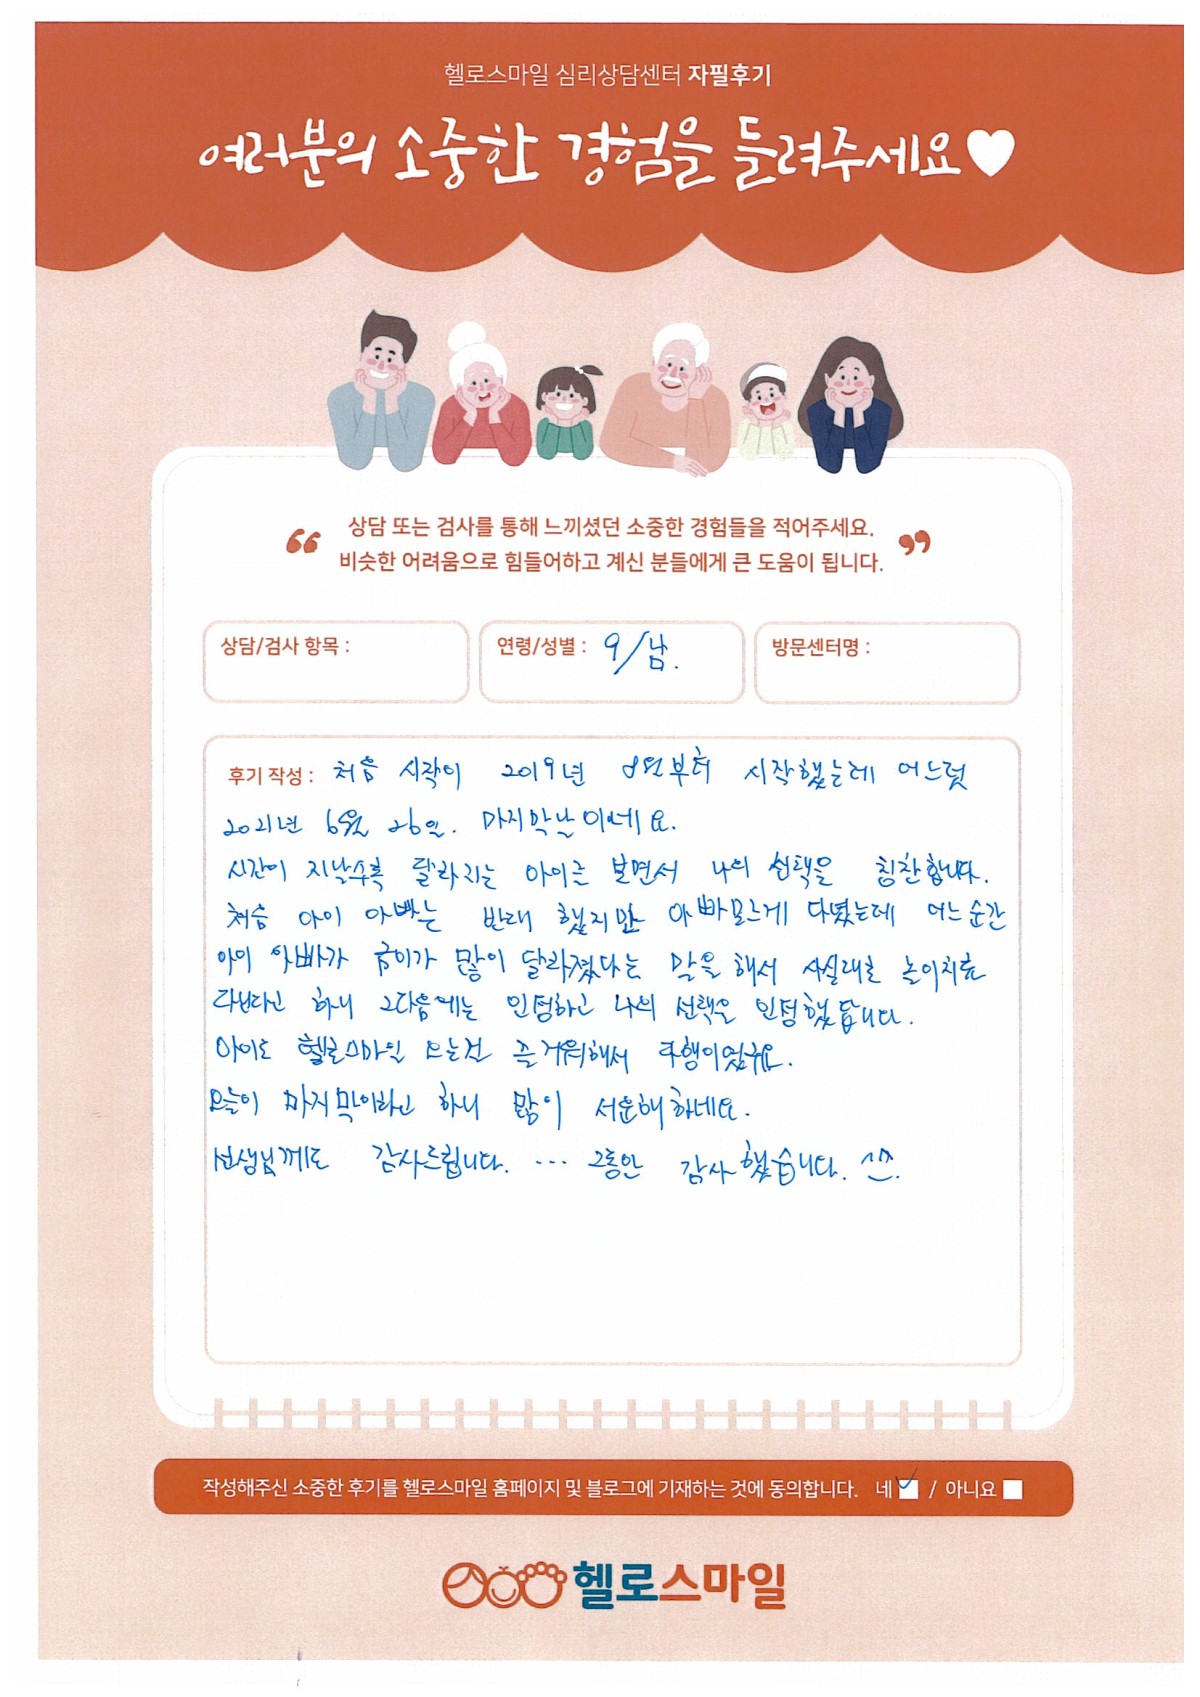 헬로스마일 심리상담센터 자필후기
여러분의 소중한 경험을 들려주세요♥
상담 또는 검사를 통해 느끼셨던 소중한 경험들을 적어주세요.
비슷한 어려움으로 힘들어하고 계신 분들에게 큰 도움이 됩니다.
상담/검사 항목 :
연령/성별 : 9/남.
방문센터명 :
후기 작성 : 처음 시작이 2019년 8월부터 시작했는데 어느덧
2021년 6월 26일. 마지막날이네요.
시간이 지날수록 달라지는 아이를 보면서 나의 선택을 칭찬합니다.
처음 아이 아빠는 반대 했지만 아빠모르게 다녔는데 어느순간
아이 아빠가 많이 달라졌다는 말을 해서 사실대로 놀이치료
다닌다고 하니 그다음에는 인정하고 나의 선택을 인정했답니다.
아이도 헬로스마일 오는건 즐거워해서 다행이었구요.
오늘이 마지막이라고 하니 많이 서운해하네요.
선생님께도 감사드립니다. ... 그동안 감사했습니다. ^^.
작성해주신 소중한 후기를 헬로스마일 홈페이지 및 블로그에 기재하는 것에 동의합니다. 네 / 아니요
헬로스마일